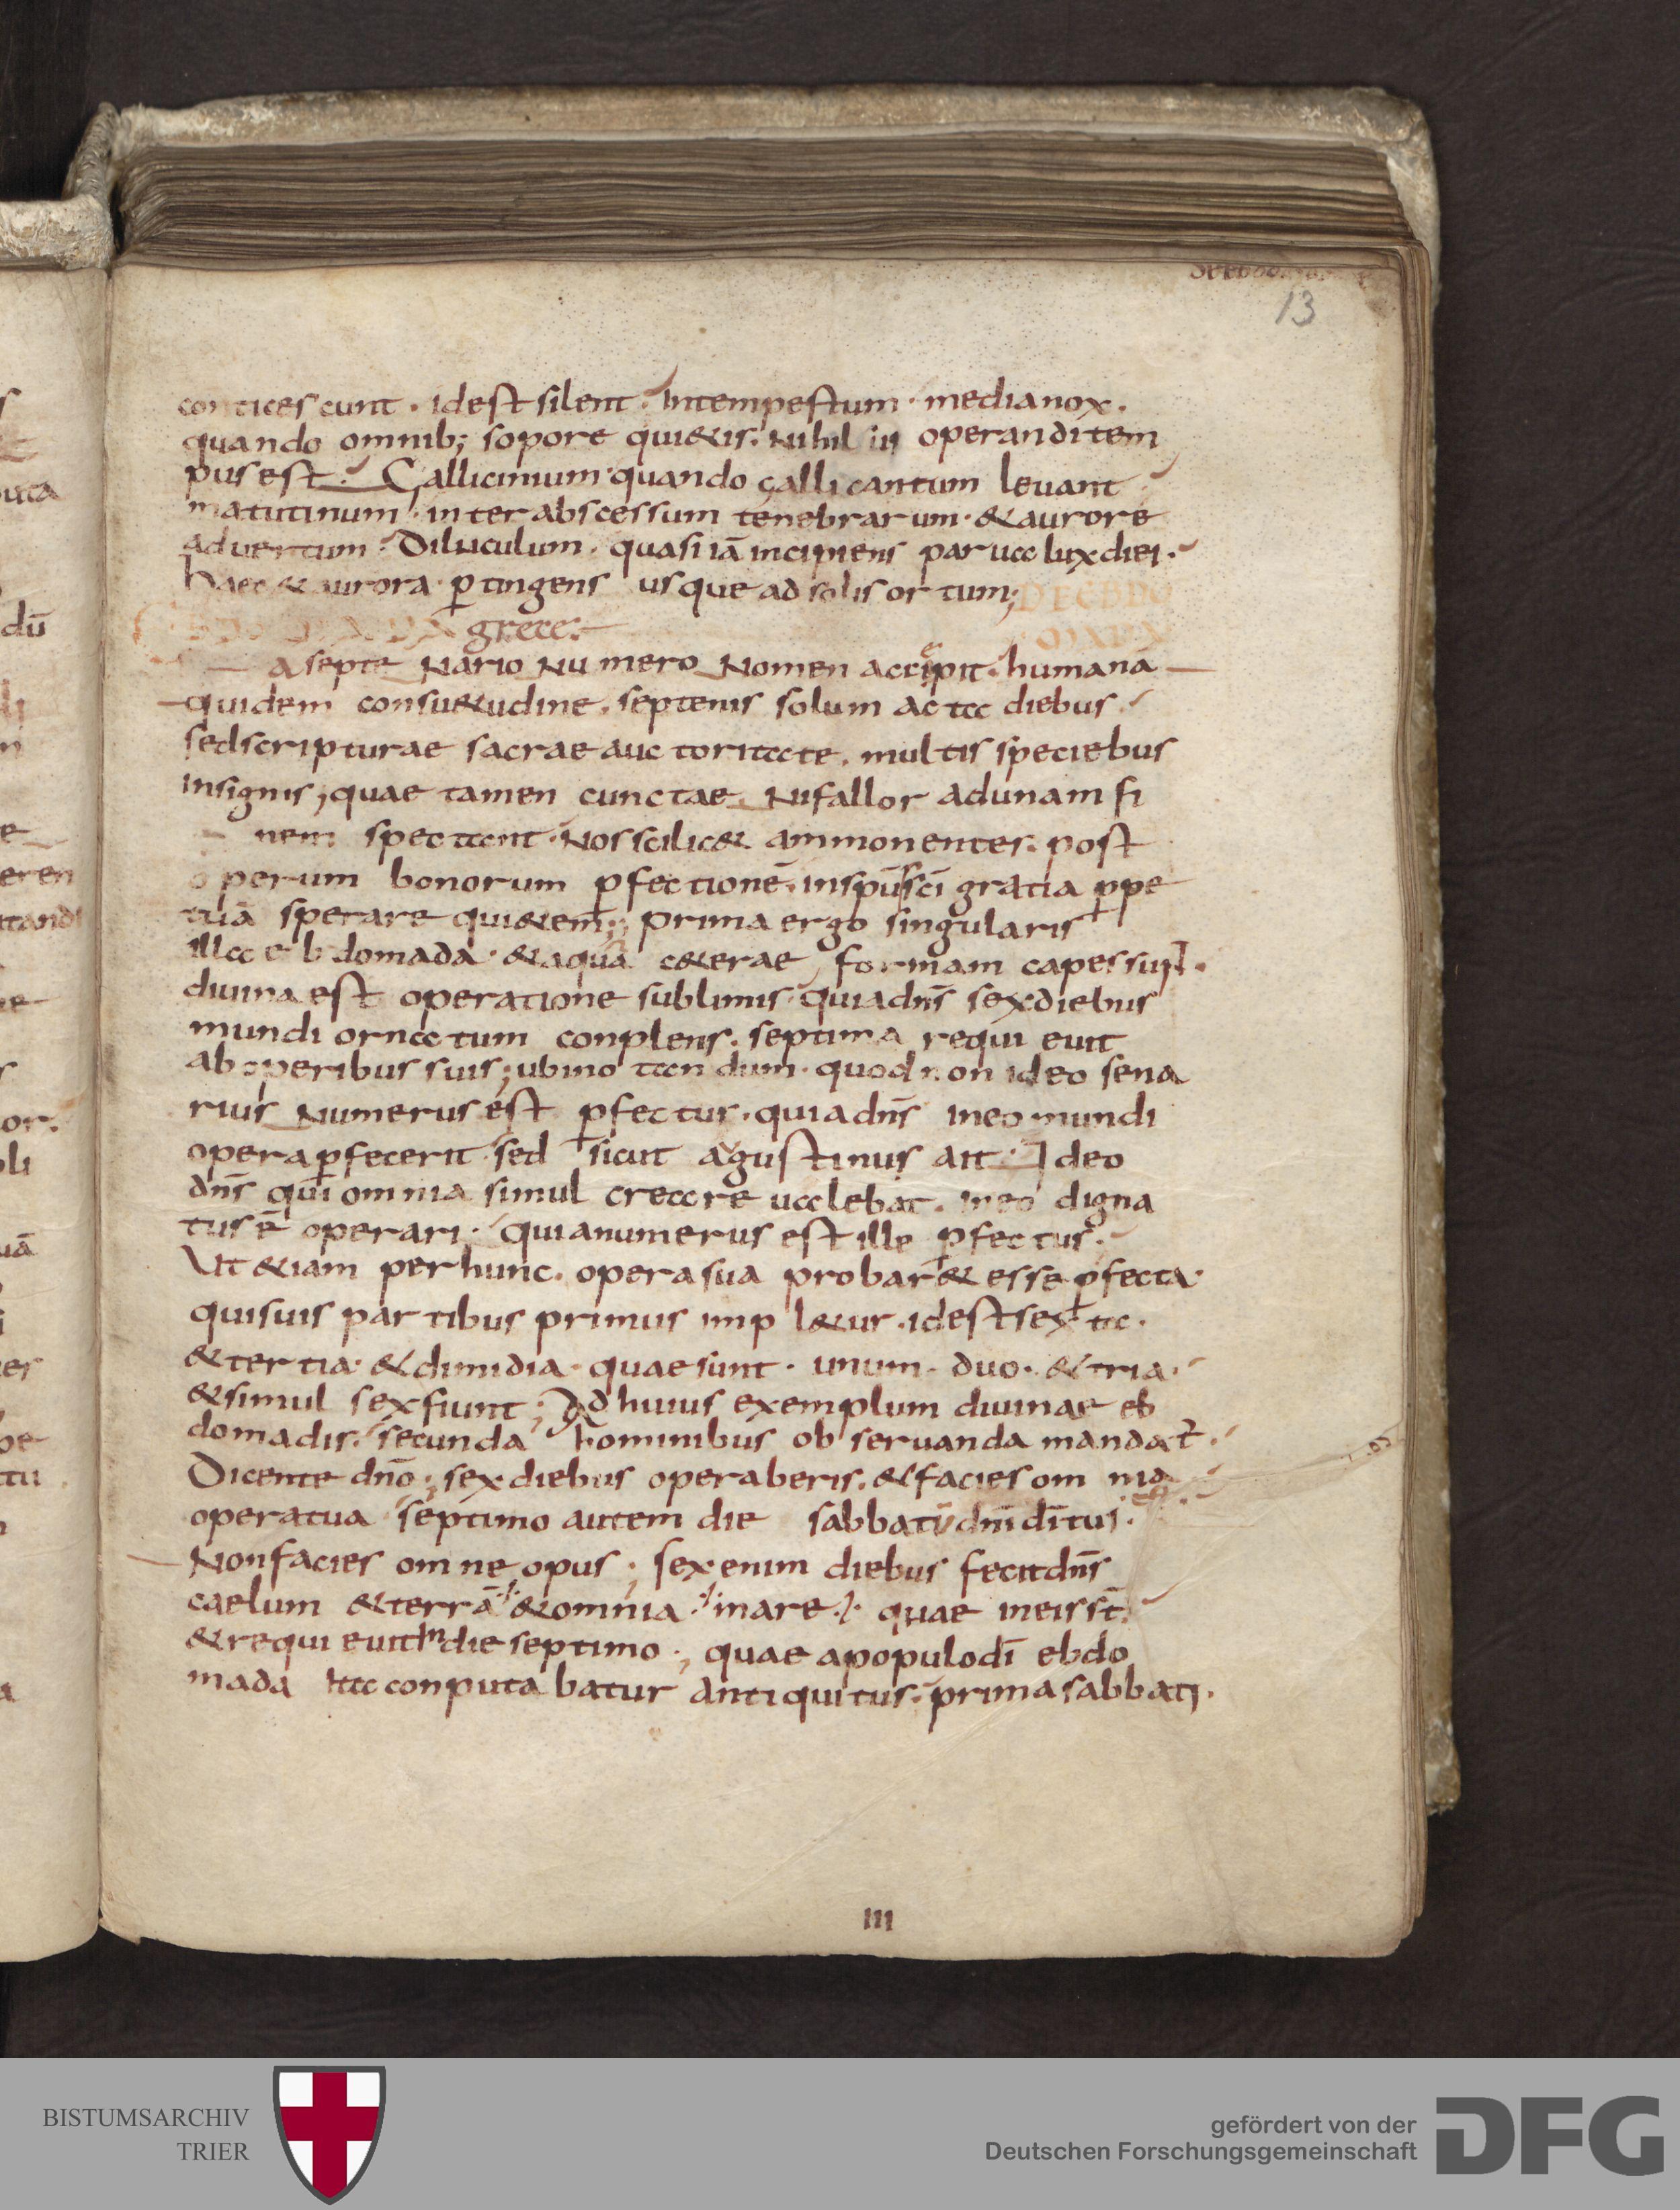 13
conticescunt · idest silent · Intempestum · media nox ·
quando omnib; sopore qui&is · Nihil operandi tem
pus est · Gallicinium · quando galli cantum levant
matutinum · inter abscessum tenebrarum · & aurore
adventum · Diluculum · quasi iā incipiens parva lux diei ·
haec & aurora · ꝑtingens usque ad solis ortum;
DE EBDO
MADA grece ·
A septenario numero nomen accepit · humana
quidem consu&udine · septenis solum ac ta diebus
sed scripturae sacrae auctoritate · multis speciebus
insignis; quae tamen cunctae · Ni fallor ad unam fi
nem spectant · Nos scilic& ammonentes · post
operum bonorum ꝑfectionē · in spūs sci gratia ꝑpe
tuā sperare qui&em; prima ergo singularis
illa ebdomada · & a qua c&erae formam capessunt ·
divina est operatione sublimis · quia dns̄ sex diebus
mundi ornatum conplens · septima requievit
ab operibus suis; ubi notandum · quod non ideo sena
rius numerus est ꝑfectus · quia dns̄ in eo mundi
opera ꝑfecerit · sed sicut agustinus ait · Ideo
dns̄ qui omnia simul creare valebat · in eo digna
tus ē operari · quia numerus est ille ꝑfectus ·
Ut &iam per hunc · opera sua probar& esse ꝑfecta ·
qui suis partibus primus impl&ur · idest sexta ·
& tertia · & dimidia · quae sunt · unum · duo · & tria ·
& simul sex fiunt; Ad huius exemplum divinae eb
domadis · secunda hominibus observanda mandat̄ ·
Dicente dno̅; sex diebus operaberis · & facies omnia
opera tua septimo autem die sabbatū dni̅ di̅ tui · est
Non facies omne opus; sex enim diebus fecit dns̄
caelum & terrā & omnia mare quae in eis st̄
& requievit In die septimo; quae a populo di̅ ebdo
mada ita conputabatur antiquitus · prima sabbati ·
III
BISTUMSARCHIV
TRIER
gefördert von der
Deutschen Forschungsgemeinschaft
DFG